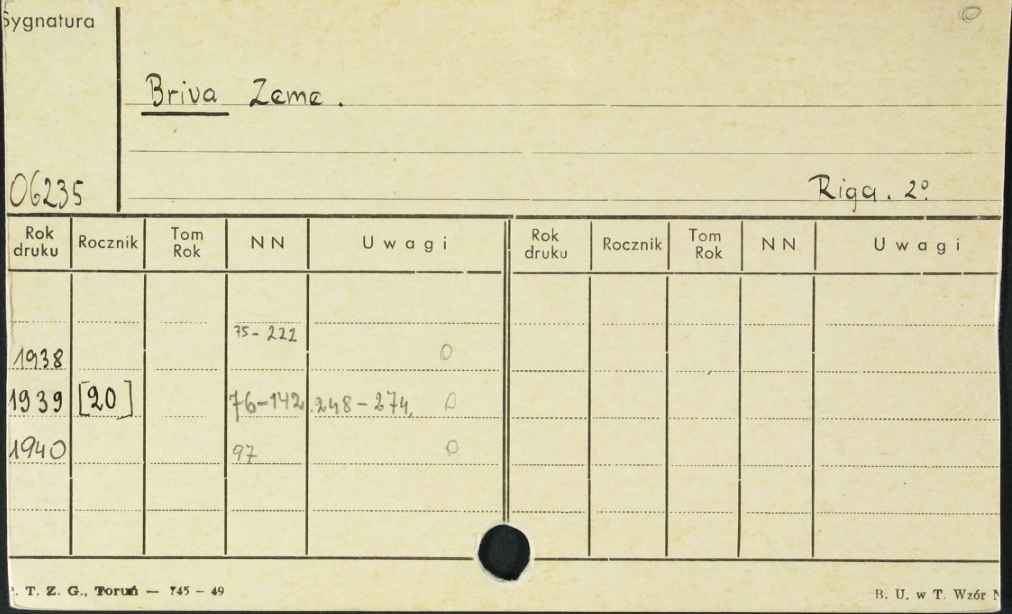 Sygnatura
Briva Zeme.
06235
Riga. 2°.
Rok druku Rocznik Tom Rok NN Uwagi Rok druku Rocznik Tom Rok NN Uwagi
75-222
1938 0
1939 [20] 76-142, 248-274, 0
1940 97 0
. T. Z. G., Toruń — 745 - 49
B. U. w T. Wzór